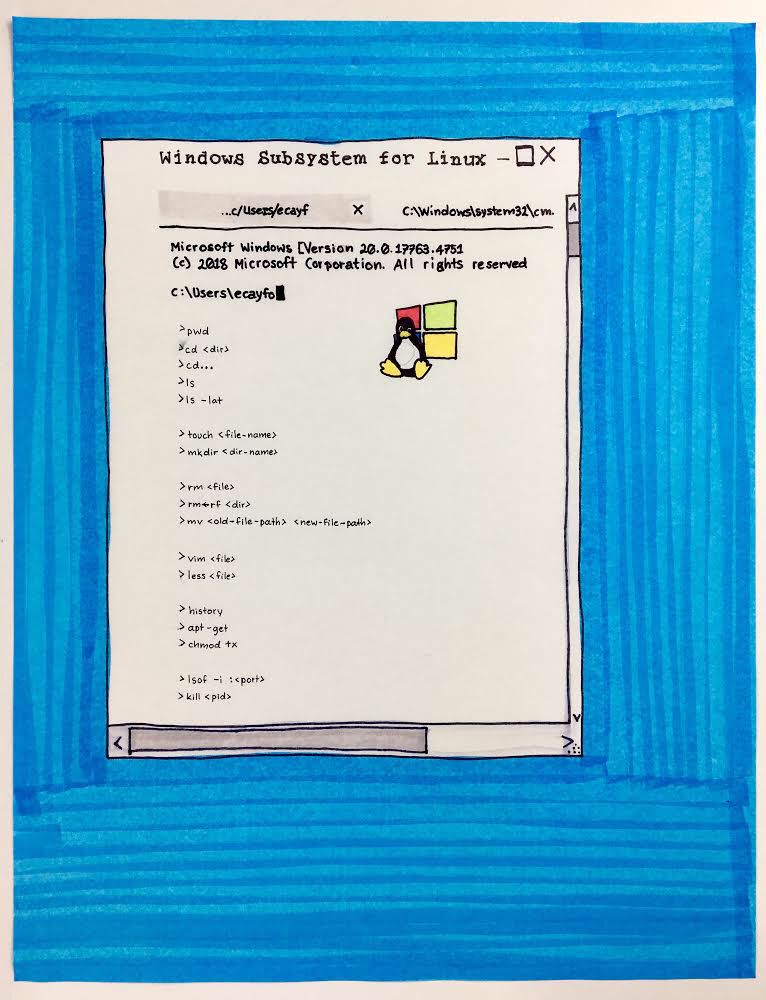 Windows Subsystem for Linux – □ X
...c/Users/ecayf X C:\Windows\system32\cm.
Microsoft Windows [Version 20.0.17763.4751
(c) 2018 Microsoft Corporation. All rights reserved
C:\Users\ecayfo
>pwd
>cd <dir>
>cd...
>ls
>ls -lat
>touch <file-name>
>mkdir <dir-name>
>rm <file>
>rm-rf <dir>
>mv <old-file-path> <new-file-path>
>vim <file>
>less <file>
>history
>apt-get
>chmod +x
>lsof -i :<port>
>kill <pid>